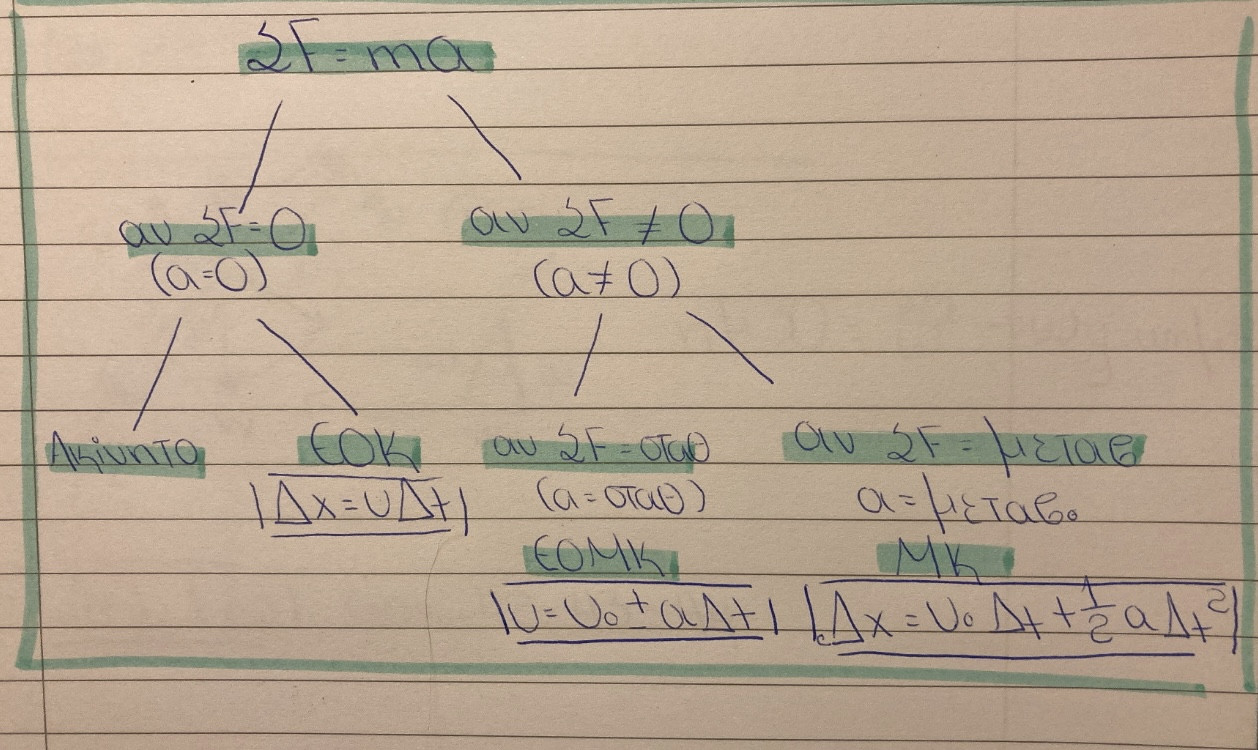 ΣF = ma
αν ΣF = 0
(a=0)
αν ΣF ≠ 0
(a≠0)
Ακίνητο
ΕΟΚ
Δx = υΔt
αν ΣF = σταθ
(a = σταθ)
ΕΟΜΚ
υ = υ₀ ± aΔt
αν ΣF = μεταβ
a = μεταβ.
ΜΚ
Δx = υ₀ Δt + 1/2 a Δt²